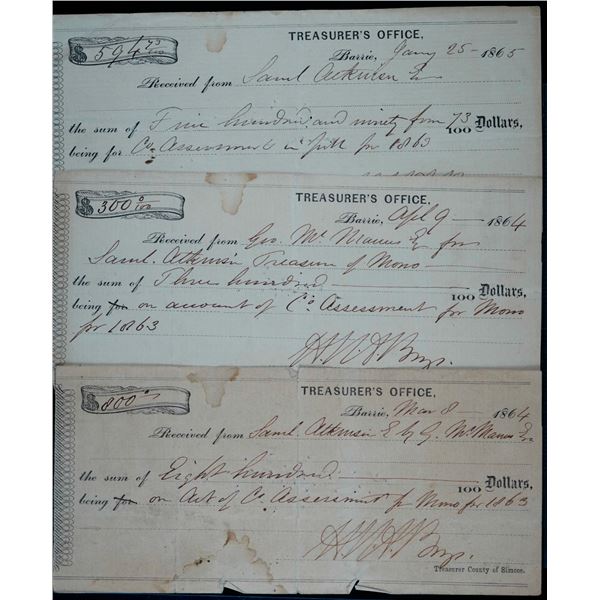 TREASURER'S OFFICE,
$ 594 73/100
Barrie, Jany 25 - 1865
Received from Saml Atkinson Esq
the sum of Five hundred and ninety four 73/100 Dollars,
being for Co. Assessment in full for 1863
TREASURER'S OFFICE,
$ 300 0/100
Barrie, Apl 9 - 1864
Received from Geo. McManus Esq for
Saml. Atkinson Treasurer of Mono
the sum of Three hundred 100 Dollars,
being for on account of Co. Assessment for Mono
for 1863
TREASURER'S OFFICE,
$ 800
Barrie, Mar 8 - 1864
Received from Saml. Atkinson E by G. McManus Esq
the sum of Eight hundred 100 Dollars,
being for on Act of Co. Assessment for Mono for 1863
Treasurer County of Simcoe.